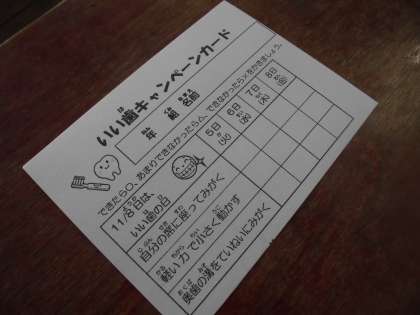 いい歯キャンペーンカード
年 組 名前
できたら○、あまりできなかったら△、できなかったら×をかきましょう。
11/8日は
いい歯の日
5日
(火)
6日
(水)
7日
(木)
8日
(金)
自分の席に座ってみがく
軽い力で小さく動かす
奥歯の溝をていねいにみがく